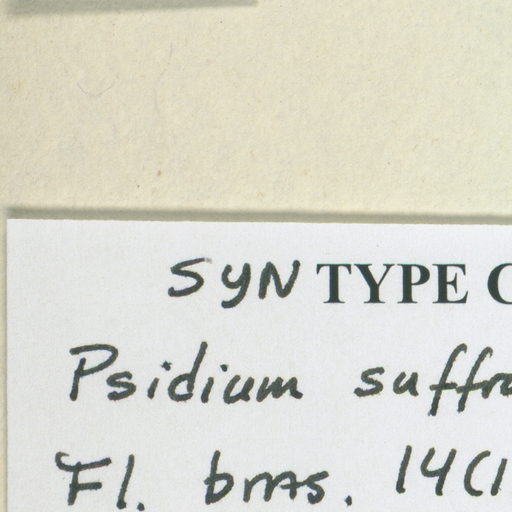 SYNTYPE O
Psidium suffr
Fl. bras. 14(1